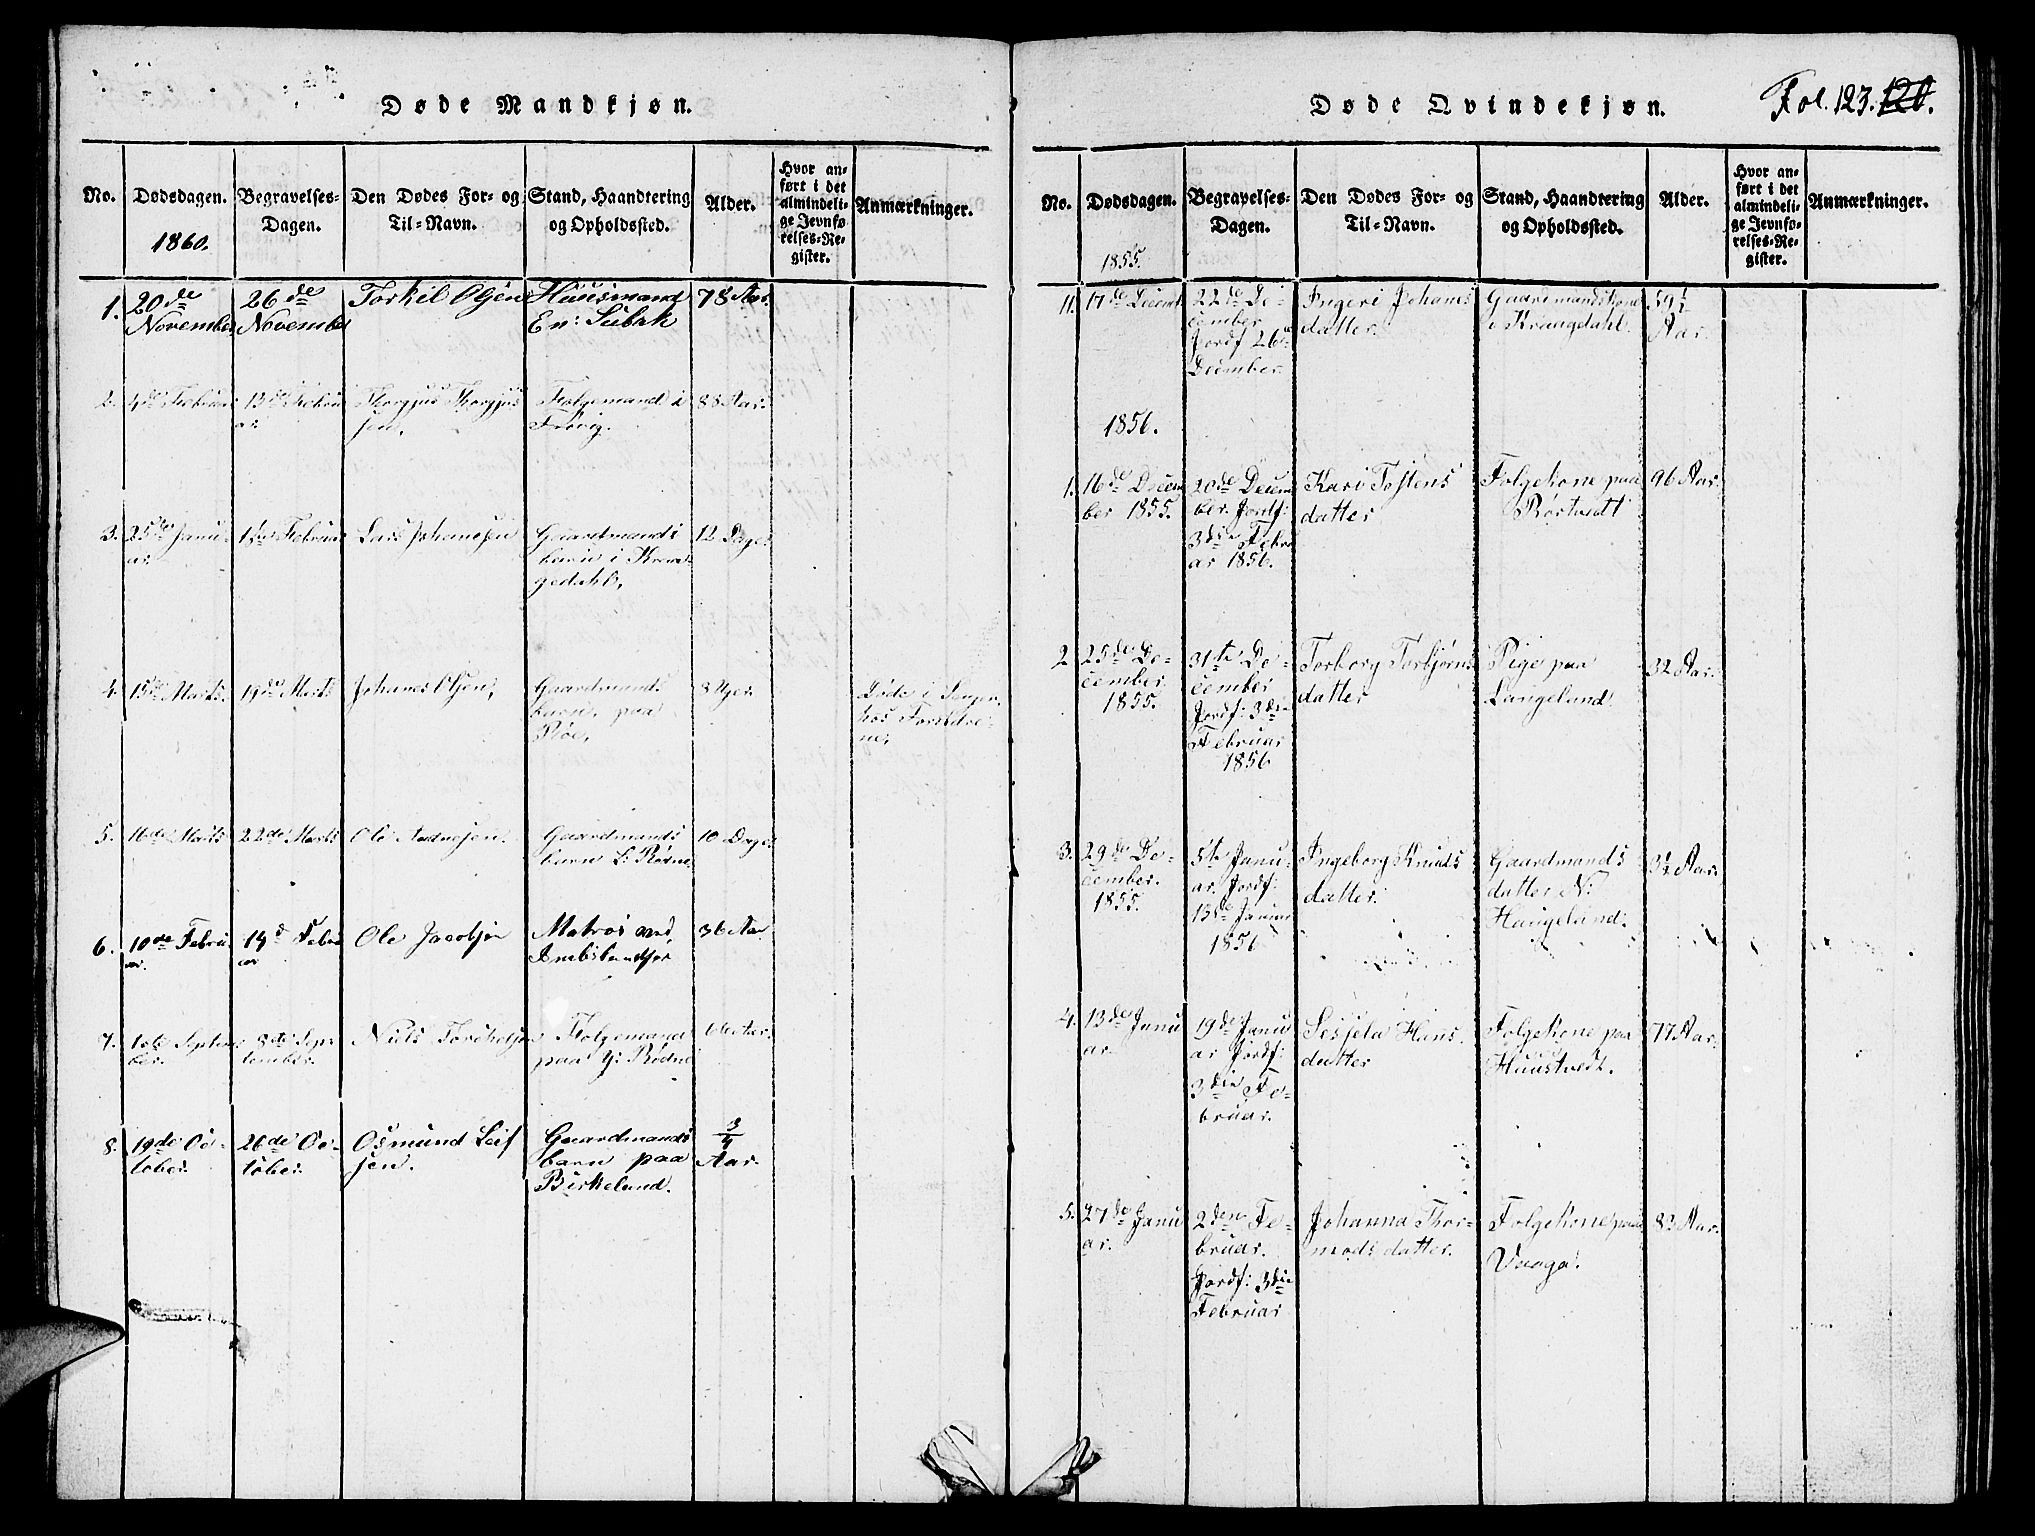 Døde Mandkjøn.
No.
Dødsdagen.
1860.
Begravelses-
Dagen.
Den Dødes For- og
Til-Navn.
Stand, Haandtering
og Opholdssted.
Alder.
Hvor an-
ført i det
almindeli-
ge Jevnfø-
relses-Re-
gister.
Anmærkninger.
1.
20de
November
26de
November
Torkil Olsen
Huusmand
78 Aar.
2.
4de Februar
13de Febru
ar.
Thorgjus Thorgjus
sen.
Folgemand i
88 Aar.
3.
25de Janu-
ar.
1ste Februar
Lars Johanesen
Gaardmands
barn i Kran-
gedahl.
12 Dage.
4.
15de Marts.
19de Marts
Johanes Olsen,
Gaardmands
barn, paa
Røe,
8 Uger.
Døde i Seng
hos Foreldre-
ne,
5.
16de Marts
22de Marts
Ole
Gaardmands
barn L: Rødne
10 Dage.
6.
10de Febru
ar.
19d Febru
ar
Ole Jacobsen
Matros ved
36 Aar.
7.
1ste Septem
ber.
8de Sep-
tember.
Niels Torchelsen
Folgemand
paa Y: Rødne
8.
19de Oc-
tober.
26de Oc-
tober.
Osmund Leif
sen.
Gaardmands
barn paa
Birkeland.
3/4
Aar.
Døde Qvindekjøn.
Fol. 123. 120.
No.
Dødsdagen.
1855.
Begravelses-
Dagen.
Den Dødes For- og
Til-Navn.
Stand, Haandtering
og Opholdssted.
Alder.
Hvor an-
ført i det
almindeli-
ge Jevnfø-
relses-Re-
gister.
Anmærkninger.
11.
17de Decemb
22de De-
cember
Jordf 26de
December.
Ingeri Johanes
datter.
Gaardmandskone
i Krangedahl.
59 1/2
Aar.
1856.
1.
16de Decem
ber 1855.
20de Decem
ber. Jordf:
3die Febru
ar 1856.
Kari Tostens
datter
Folgekone paa
Rørtvedt
96 Aar.
2
25de De-
cember
1855.
31te De-
cember
Jordf: 3die
Februar
1856
Torborg Torbjørns
datter
Pige paa
Langeland.
32 Aar.
3.
29de De-
cember.
1855.
5te Janu-
ar. Jordf:
13de Januar
1856
Ingeborg Knuds
datter.
Gaardmands
datter N:
Haugeland.
Aar.
4.
13de Janu
ar.
19de Janu
ar Jordf:
3die Fe-
bruar.
Sessela Hans
datter
Folgekone paa
Huustvedt.
77 Aar.
5.
27de Janu
ar.
2den Fe-
bruar.
Jordf: 3die
Februar
Johanna Thor-
mods datter.
Folgekone paa
Vaaga.
Aar.